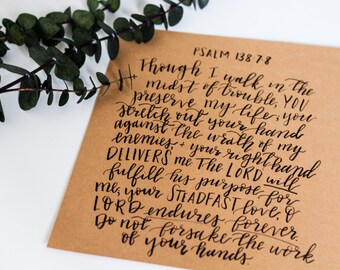 PSALM 138 7-8
Though I walk in the
midst of trouble, YOU
preserve my life; you
stretch out your hand
against the wrath of my
enemies + your right hand
DELIVERS me THE LORD will
fulfill his purpose for
me, your STEADFAST love, O
LORD endures forever.
Do not forsake the work
of your hands.